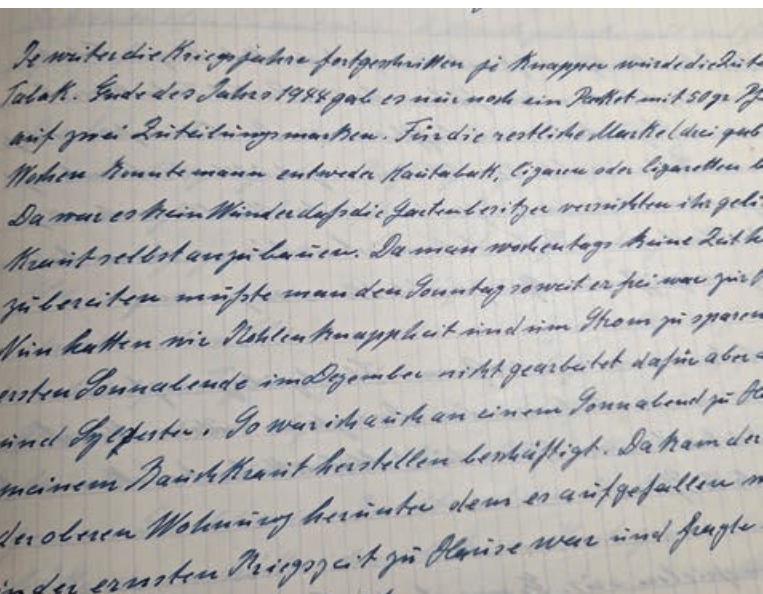 Je weiter die Kriegsjahre fortgeschritten je knapper wurde die Zute
Tabak. Ende des Jahrs 1944 gab es nur noch ein Packet mit 50 gr Pf
auf zwei Zuteilungsmarken. Für die restliche Marke drei gab
Wochen konnte mann entweder Kautabak, Cigaren oder Cigaretten
Da war es kein Wunder dass die Gartenbesitzer versuchten ihr geli
Kraut selbst anzubauen. Da man wochentags keine Zeit h
zubereiten musste man den Sonntag soweit er frei war zur
Nun hatten wir Kohlenknappheit und um Strom zu sparen
ersten Sonnabende im Dezember nicht gearbeitet dafür aber
und Sylfester. So war ich auch an einem Sonnabend zu
meinem Rauchkraut herstellen beschäftigt. Da kam der
der oberen Wohnung herunter dem es aufgefallen
in der ernsten Kriegszeit zu Hause war und fragte